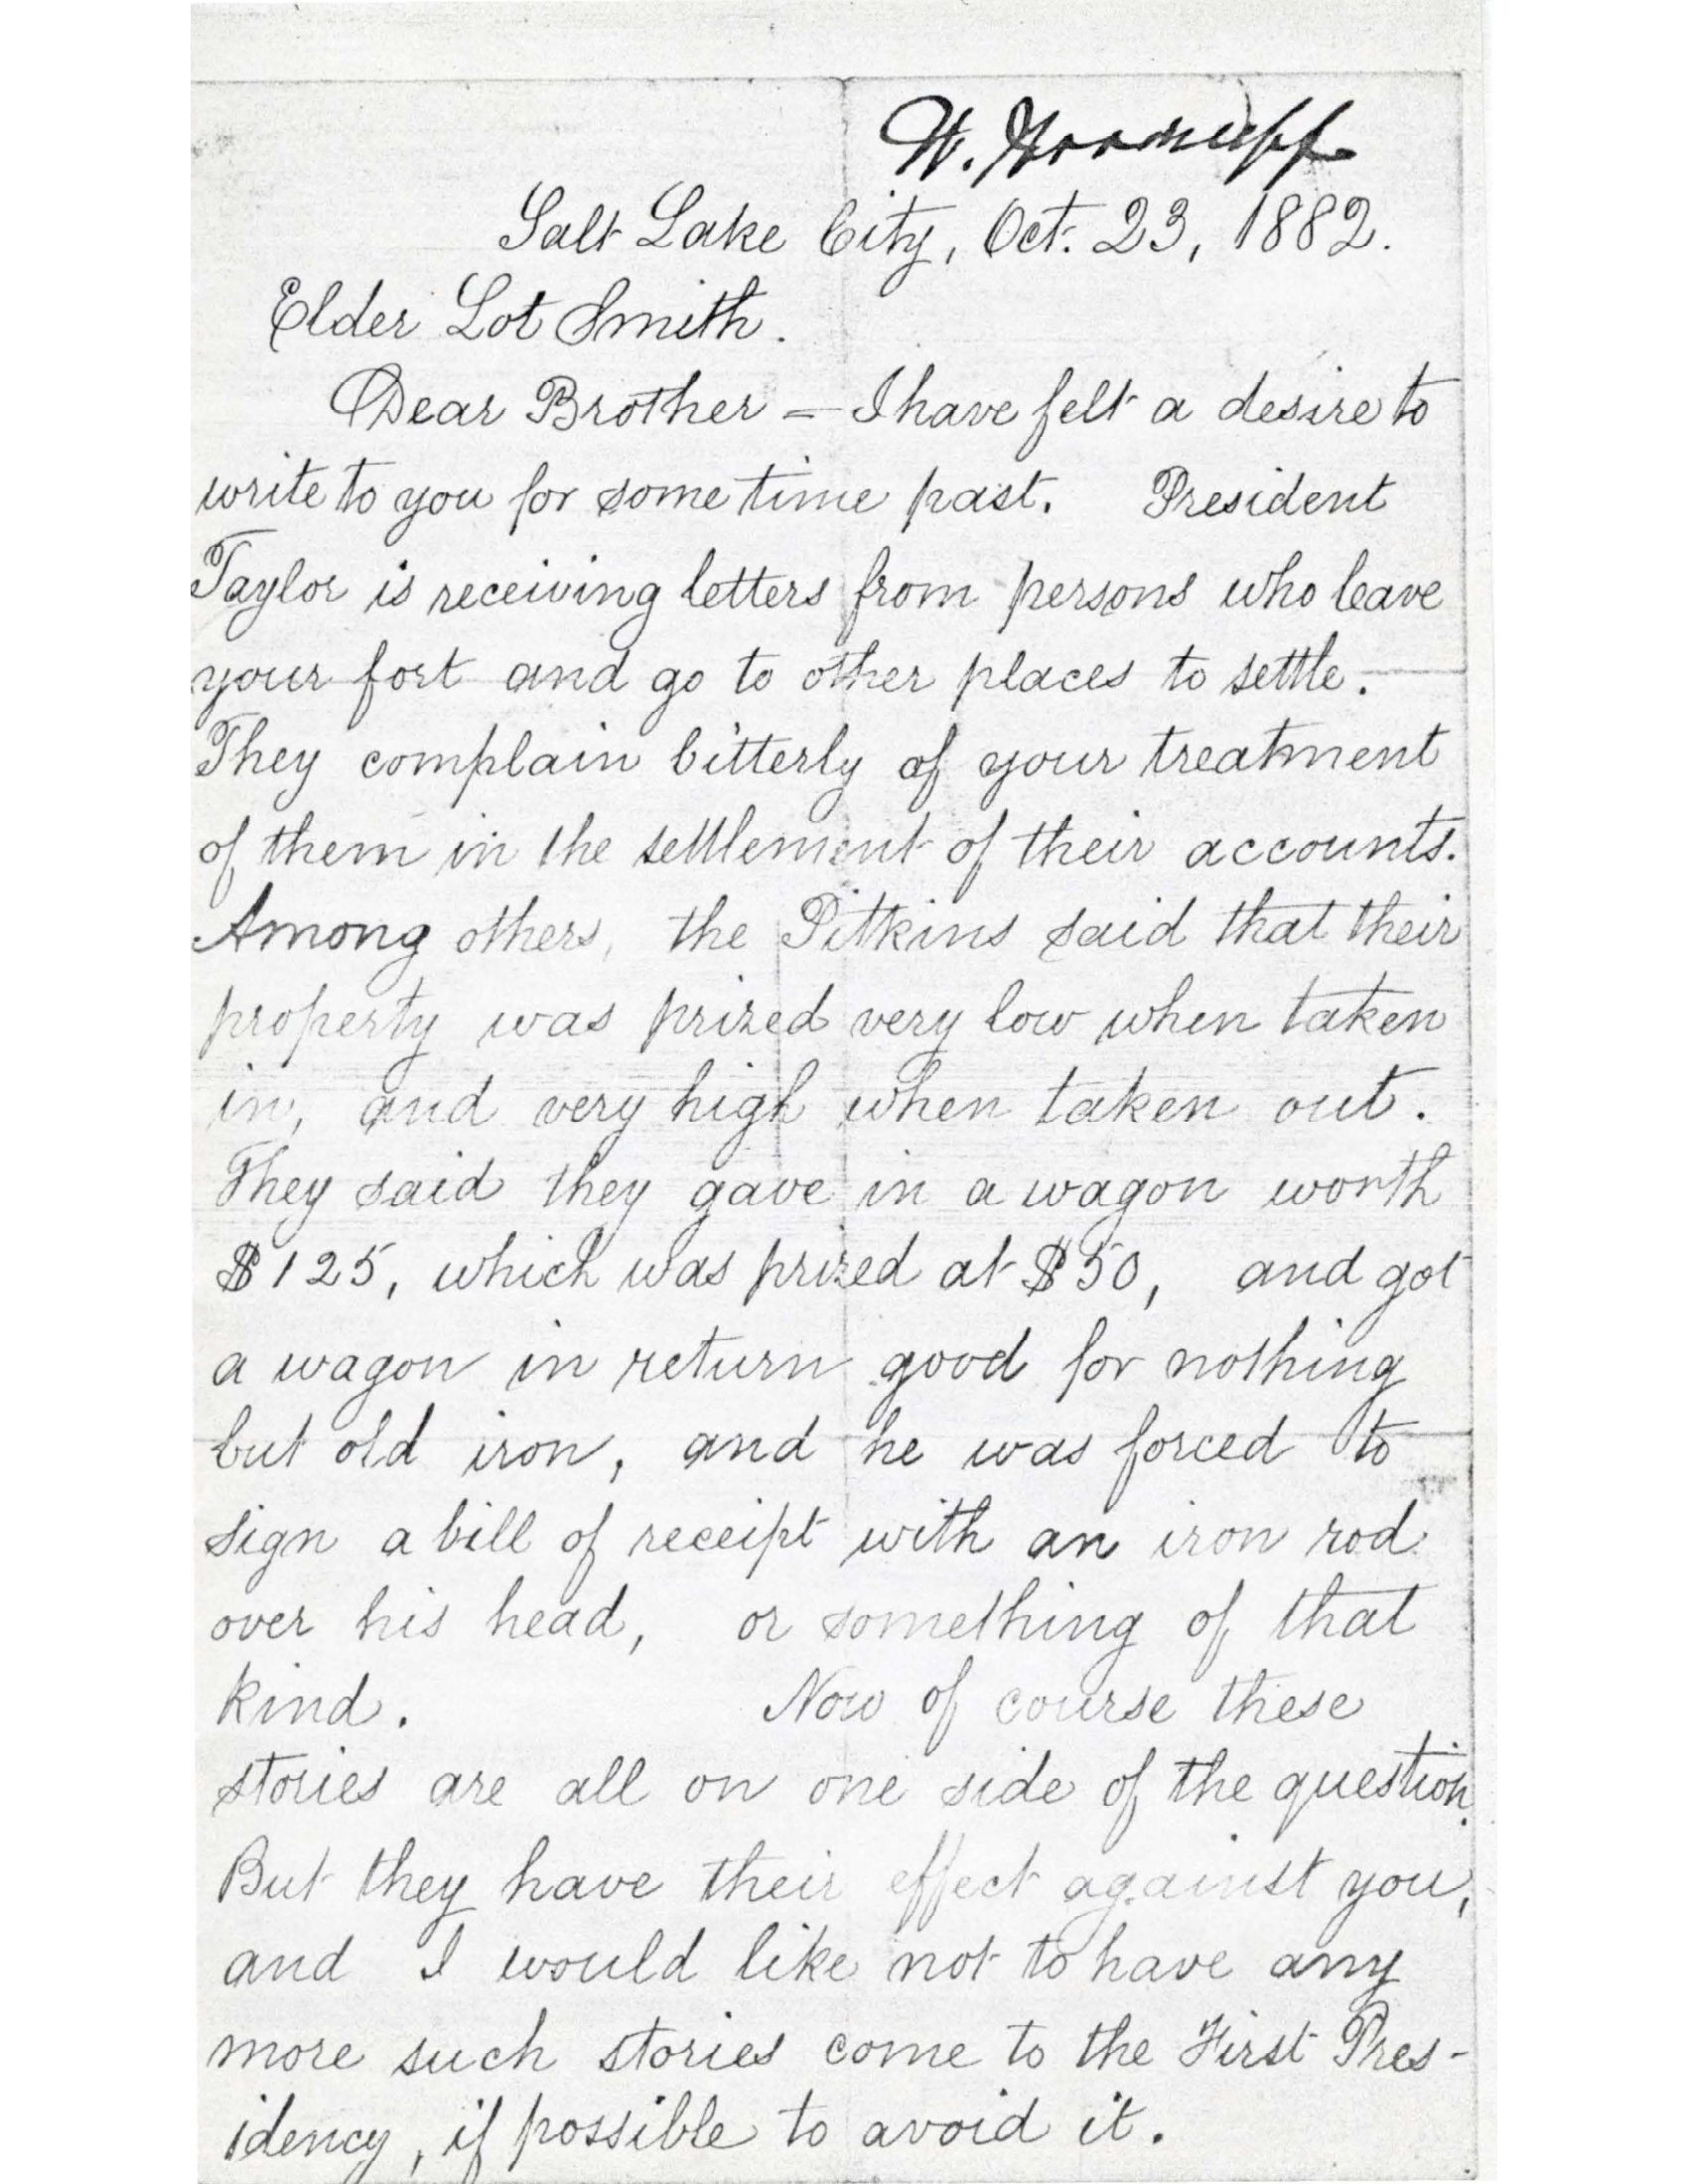 W. Woodruff
Salt Lake City, Oct. 23, 1882.
Elder Lot Smith.
Dear Brother – I have felt a desire to
write to you for some time past. President
Taylor is receiving letters from persons who leave
your fort and go to other places to settle.
They complain bitterly of your treatment
of them in the settlement of their accounts.
Among others, the Pitkins said that their
property was prized very low when taken
in, and very high when taken out.
They said they gave in a wagon worth
$125, which was prized at $50, and got
a wagon in return good for nothing
but old iron, and he was forced to
sign a bill of receipt with an iron rod
over his head, or something of that
kind. Now of course these
stories are all on one side of the question.
But they have their effect against you,
and I would like not to have any
more such stories come to the First Pres-
idency, if possible to avoid it.